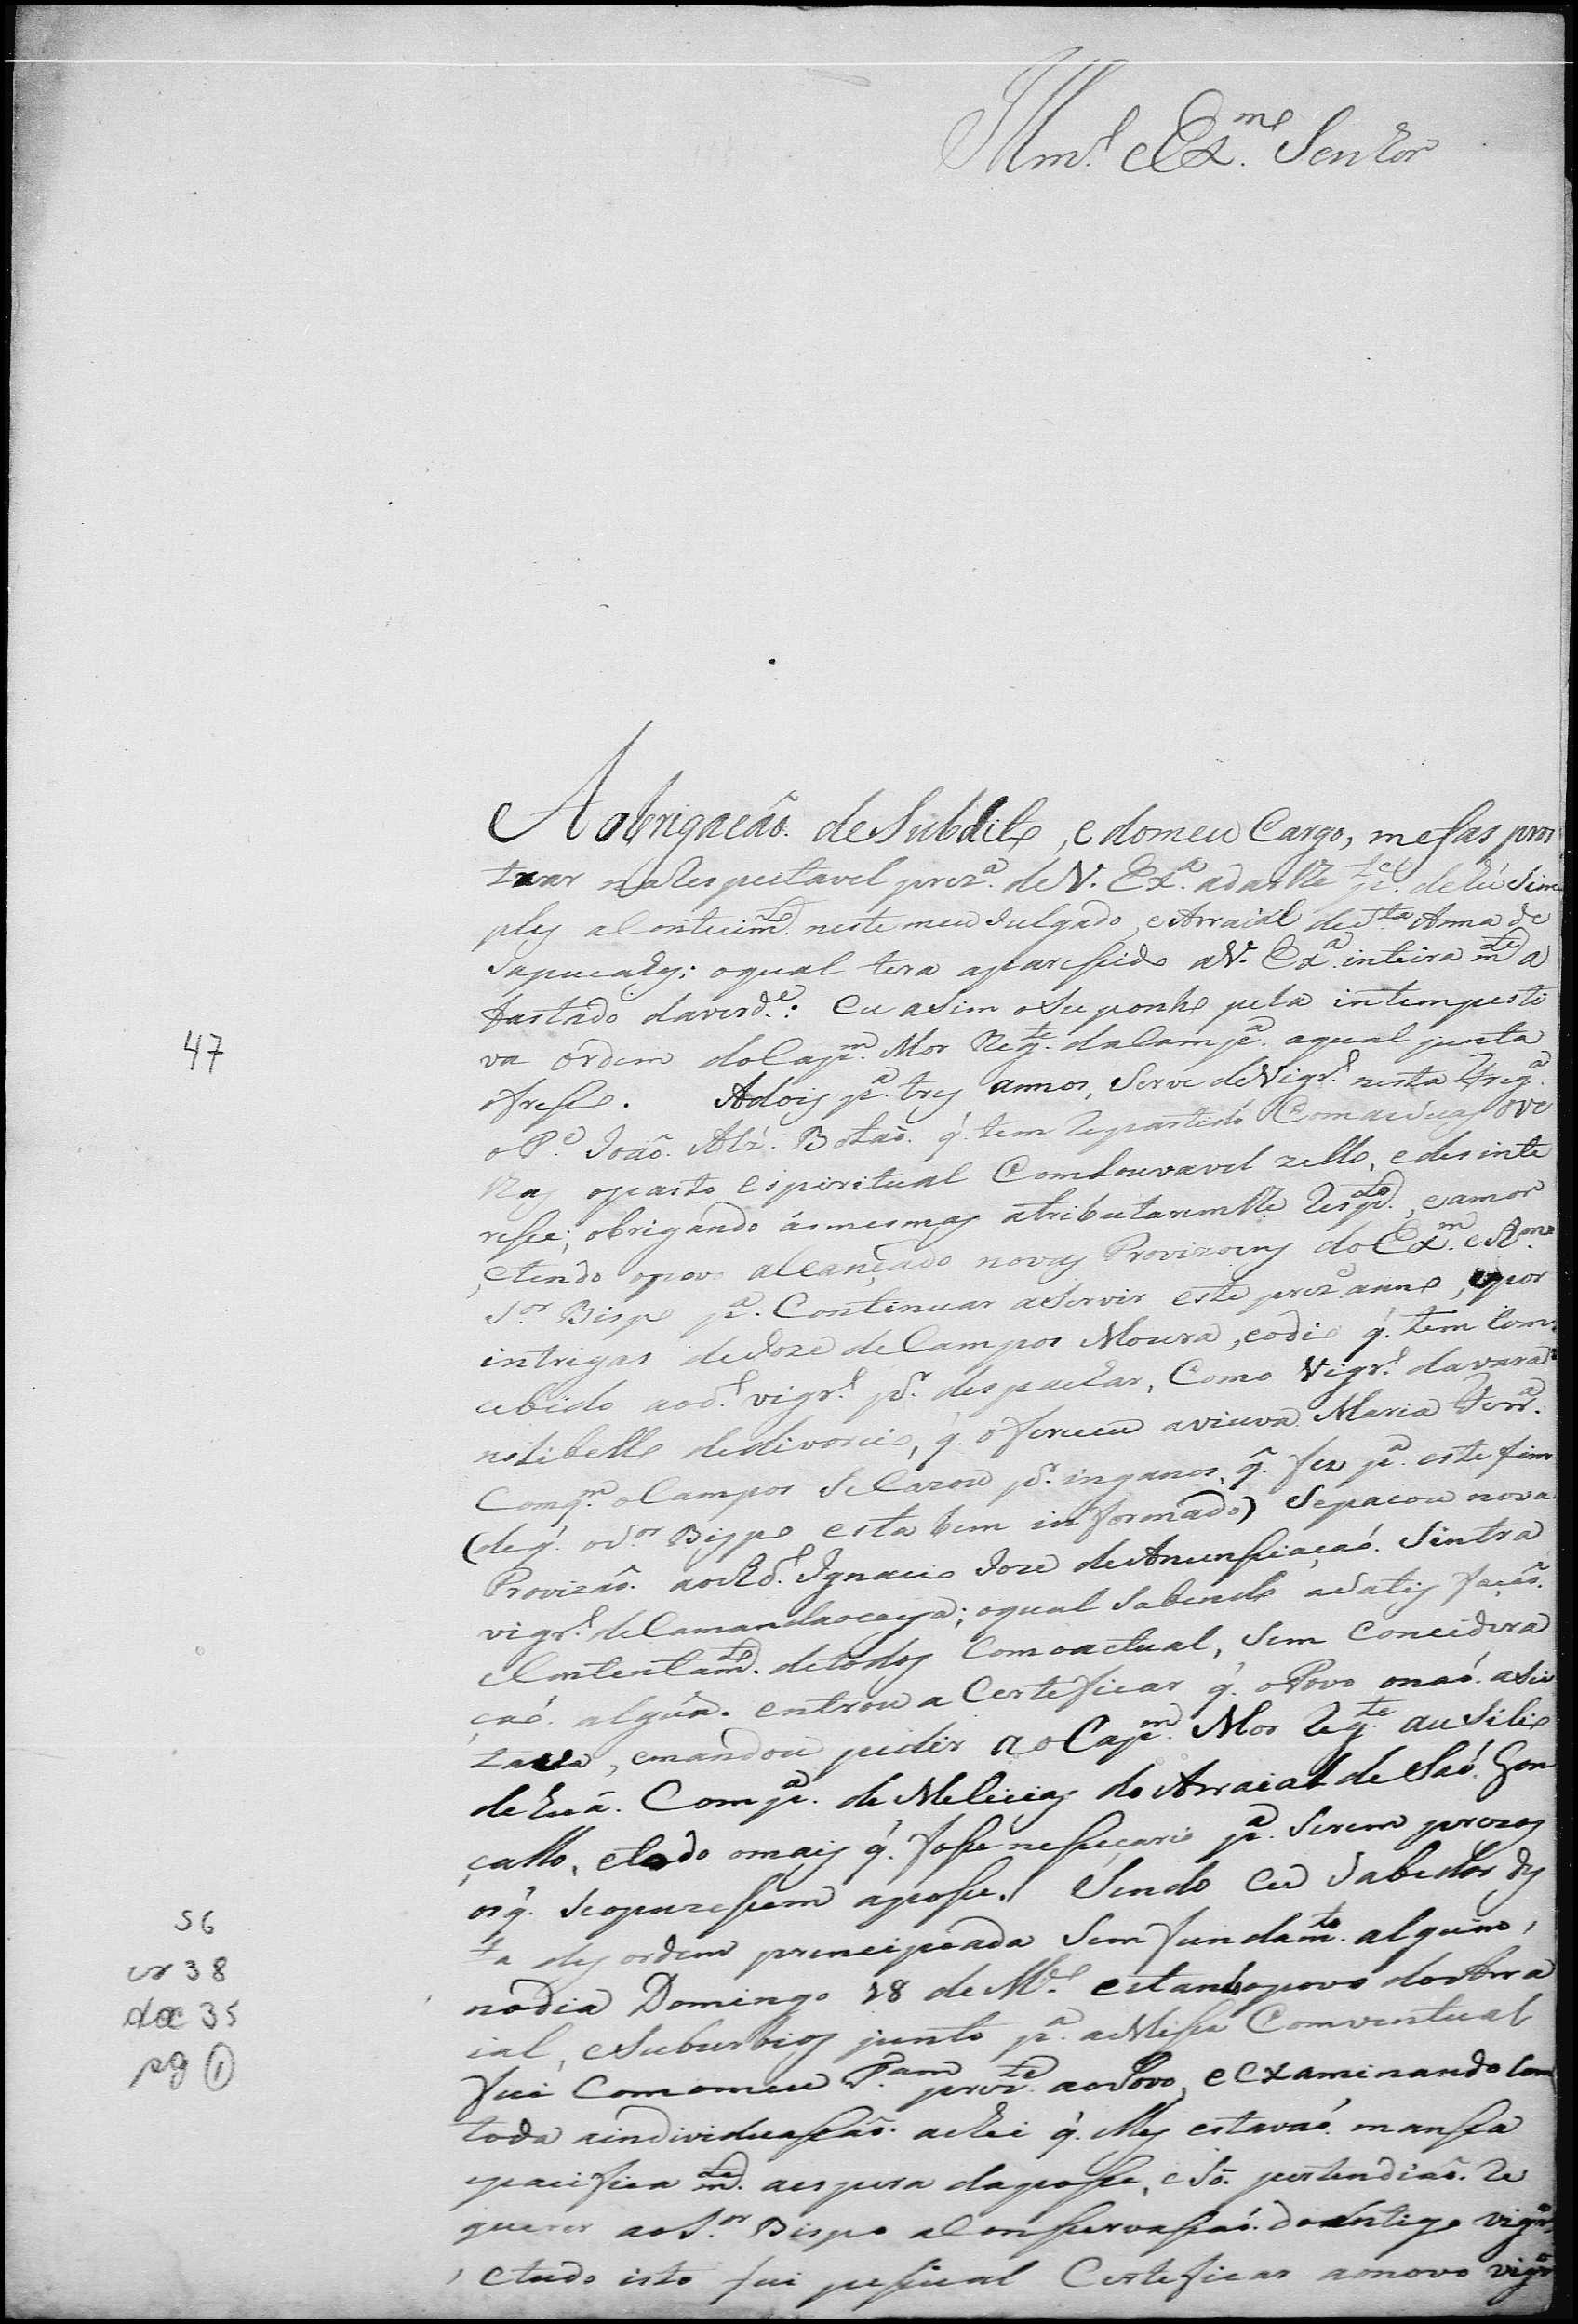 Illmo. e Exmo. Senhor
A obrigacaõ. de Subdito, e domeu Cargo, mefas pros
trar na Respeitavel prezа. de V. Exа. a dar lhe pte. de hũ Sim
ples acontecimto. neste meu Julgado, e Arraial de Sta Anna de
Sapucahy; oqual tera aparesido aV. Exа. inteiramte a
fastado daverde.: eu asim osuponho pela intempesti
va órdem do Capm. Mor Regte. da Campа. aqual junta
ofreso. Adois pа. tres annos, Serve de Vigro. nesta Frega.
47
o Pe. Joaõ. Alz'. Botaõ. q'. tem Repartido Com as suas ove
lhas opasto espiritual Com louvavel zello, e desinte
resse; obrigando ásmesmas atributaremlhe Respto., e amor
, etendo opovo alcançado novas Provizoens do Exm. e Rmo.
Sor. Bispo pа. Continuar aServir este preze anno, epor
intrigas de Joze de Campos Moura, eodio q'. tem Com
cebido aodo. vigro. pr. despachar, Como Vigro. davara
nolibello dedivorcio, q'. ofereceu aviuva Maria Ferrа.
Comqm. o Campos Se Cazou pr. inganos, q'. fes pа. este fim
(deq'. oSor. Bispo esta bem informado) Sepacou nova
Provizaõ. aoRdo. Ignacio Joze de Anunsiaçaó. Sintra
vigro. de Camandaocaya; oqual Sabendo aSatisfaçaõ.
e Contentamto. detodos Comoactual, Sem Concidera
çaó. algũa. entrou a Certeficar q'. oPovo onaó. asei
tava, emandou pedir ao Capm. Mor Regte. auSilio
de huã. Compа. de Melicias do Arraial de Saó. Gon
çallo, etodo omais q'. fose nesesario pа. Serem prezos
osq'. Seopuzesem aposse. Sendo eu Sabedor des
ta desordem principiada Sem fundamto. algum,
56
cx 38
dox 35
pg 1
nodia Domingo 28 de Mço. estando opovo do Arra
ial, eSuburbios junto pа. aMisa Comventual
fui Comomeu Escram prezte aoPovo, e Examinando Com
toda aindividuasaõ. achei q'. elles estavaó. mansa
epacificamte. aespera daposse, eSó. pertendiaõ. Re
querer aoSor. Bispo aConservasaó. do antigo vigro,
, etudo isto fui pesoal Certeficar aonovo vigro